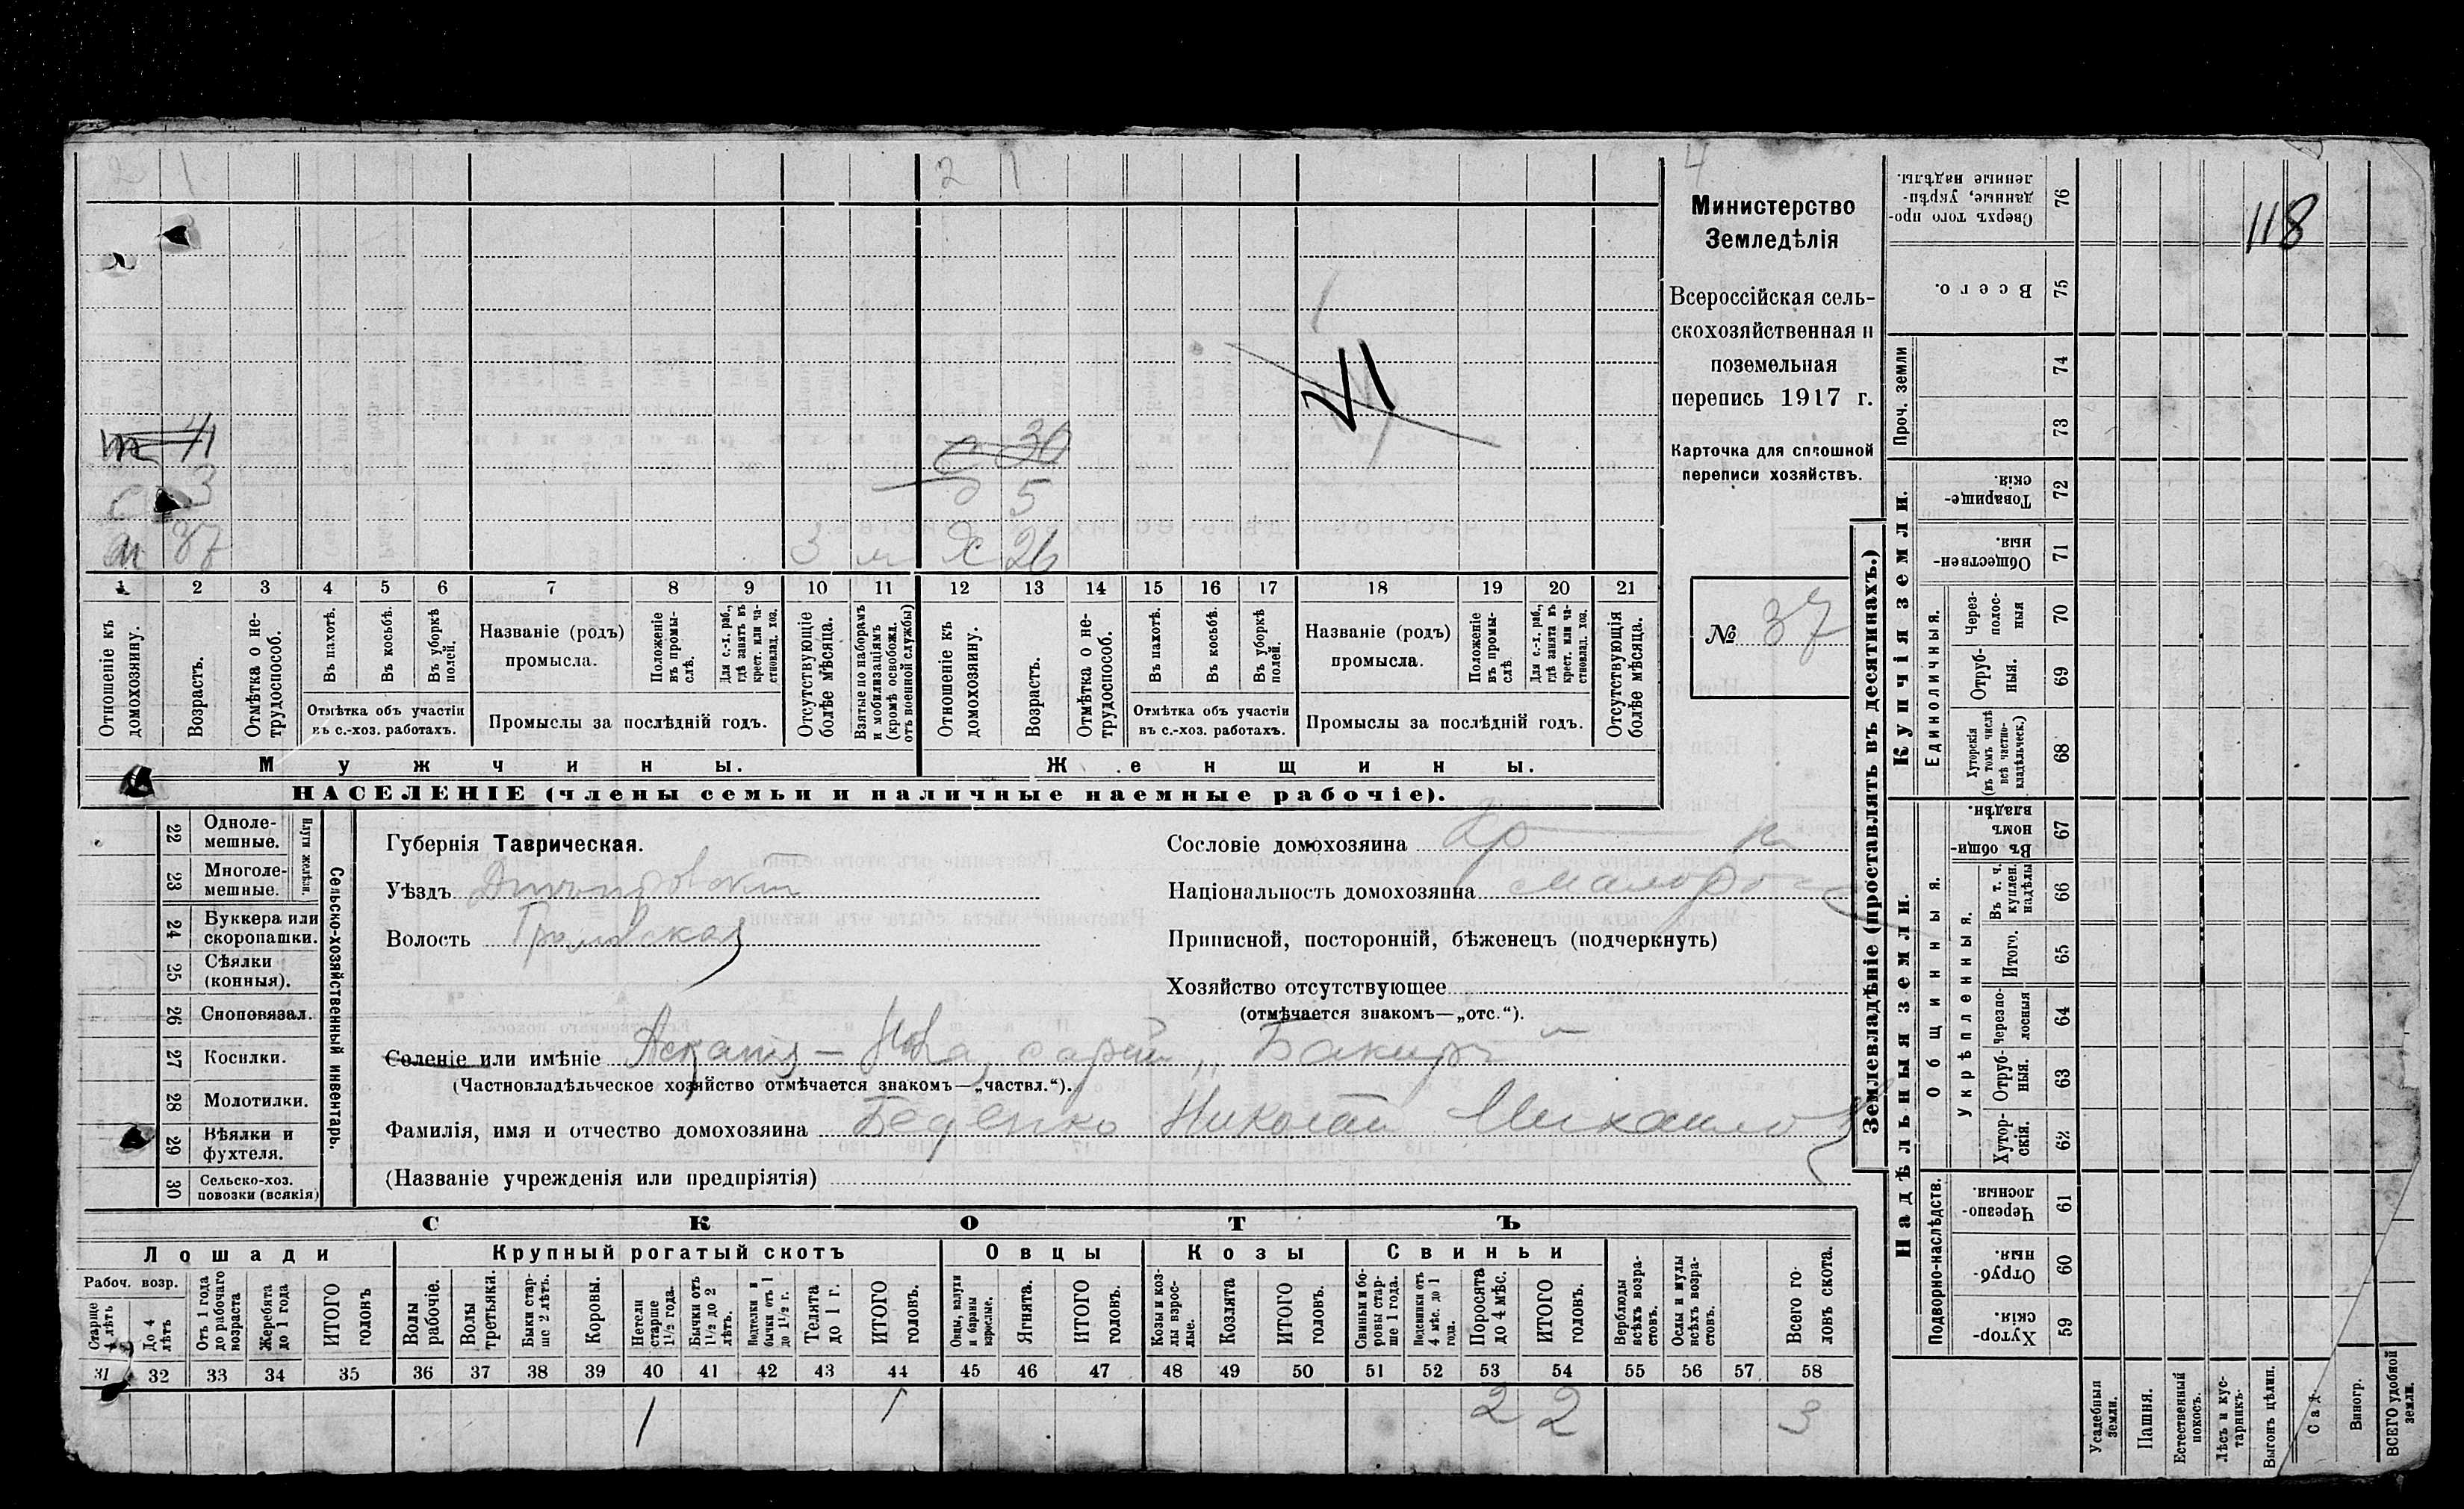 2 1 2 1 4
118
Министерство
Земледѣлія
Всероссійская сель-
скохозяйственная и
поземельная
перепись 1917 г.
Карточка для сплошной
переписи хозяйствъ.
№ 37
м 41 с 30
с 3 д 5
м 37 3 м ж 26
1 2 3 4 5 6 7 8 9 10 11 12 13 14 15 16 17 18 19 20 21
Отношеніе къ домохозяину.
Возрастъ.
Отмѣтка о не-трудоспособ.
Въ пахотѣ.
Въ косьбѣ.
Въ уборкѣ полей.
Отмѣтка объ участіи
въ с.-хоз. работахъ.
Названіе (родъ)
промысла.
Положеніе въ промы-слѣ.
Для с.-х. раб., гдѣ занятъ въ крест. или ча-стновлад. хоз.
Промыслы за послѣдній годъ.
Отсутствующіе болѣе мѣсяца.
Взятые по наборамъ и мобилизаціямъ (кромѣ освобожд. отъ военной службы)
Отношеніе къ домохозяину.
Возрастъ.
Отмѣтка о не-трудоспособ.
Въ пахотѣ.
Въ косьбѣ.
Въ уборкѣ полей.
Отмѣтка объ участіи
въ с.-хоз. работахъ.
Названіе (родъ)
промысла.
Положеніе въ промы-слѣ.
Для с.-х. раб., гдѣ занята въ крест. или ча-стновлад. хоз.
Промыслы за послѣдній годъ.
Отсутствующія болѣе мѣсяца.
Мужчины. Женщины.
НАСЕЛЕНІЕ (члены семьи и наличные наемные рабочіе).
22 Одноле-мешные.
23 Многоле-мешные.
Плуги желѣзн.
24 Буккера или скоропашки.
25 Сѣялки (конныя).
26 Сноповязал.
27 Косилки.
28 Молотилки.
29 Вѣялки и фухтеля.
30 Сельско-хоз. повозки (всякія)
Сельско-хозяйственный инвентарь.
Губернія Таврическая.
Уѣздъ Днепровский
Волость Громовская
Сословіе домохозяина кр-н
Національность домохозяина малоросс
Приписной, посторонній, бѣженецъ (подчеркнуть)
Хозяйство отсутствующее
(отмѣчается знакомъ—„отс.“).
Селеніе или имѣніе Аскания-Нова, сарай „Бакиръ“
(Частновладѣльческое хозяйство отмѣчается знакомъ—„частвл.“).
Фамилія, имя и отчество домохозяина Беденко Николай Михайлов
(Названіе учрежденія или предпріятія)
СКОТЪ
Лошади Крупный рогатый скотъ Овцы Козы Свиньи
Рабоч. возр.
Старше 4 лѣтъ
До 4 лѣтъ
Отъ 1 года до рабочаго возраста
Жеребята до 1 года
ИТОГО головъ
Волы рабочіе.
Волы третьяки.
Быки стар-ше 2 лѣтъ.
Коровы.
Нетели старше 1½ года.
Бычки отъ 1½ до 2 лѣтъ.
Подтелки и бычки отъ 1 до 1½ г.
Телята до 1 г.
ИТОГО головъ.
Овцы, валухи и бараны взрослые.
Ягнята.
ИТОГО головъ.
Козы и коз-лы взрос-лые.
Козлята
ИТОГО головъ.
Свиньи и бо-ровы стар-ше 1 года.
Подсвинки отъ 4 мѣс. до 1 года.
Поросята до 4 мѣс.
ИТОГО головъ.
Верблюды всѣхъ возра-стовъ.
Ослы и мулы всѣхъ возра-стовъ.
Всего го-ловъ скота.
31 32 33 34 35 36 37 38 39 40 41 42 43 44 45 46 47 48 49 50 51 52 53 54 55 56 57 58
1 1 2 2 3
Землевладѣніе (проставлять въ десятинахъ.)
Купчія земли.
Надѣльныя земли.
Сверхъ того про-данные, укрѣп-ленные надѣлы. 76
Всего. 75
Проч. земли
74
73
Товарище-скія 72
Обществен-ныя. 71
Единоличныя.
Через-полос-ныя 70
Отруб-ныя. 69
Хуторскія (въ томъ числѣ всѣ частно-владѣльческ.) 68
Общинныя.
Въ общин-номъ владѣн. 67
Укрѣпленныя.
Въ т. ч. куплен. надѣлы 66
Итого. 65
Черезпо-лосныя 64
Отруб-ныя. 63
Хутор-скія. 62
Подворно-наслѣдств.
Черезпо-лосныя 61
Отруб-ныя. 60
Хутор-скія. 59
Усадебныя земли.
Пашня.
Естественный покосъ.
Лѣсъ и кус-тарникъ.
Выгонъ цѣлин.
Садъ
Виногр.
ВСЕГО удобной земли.